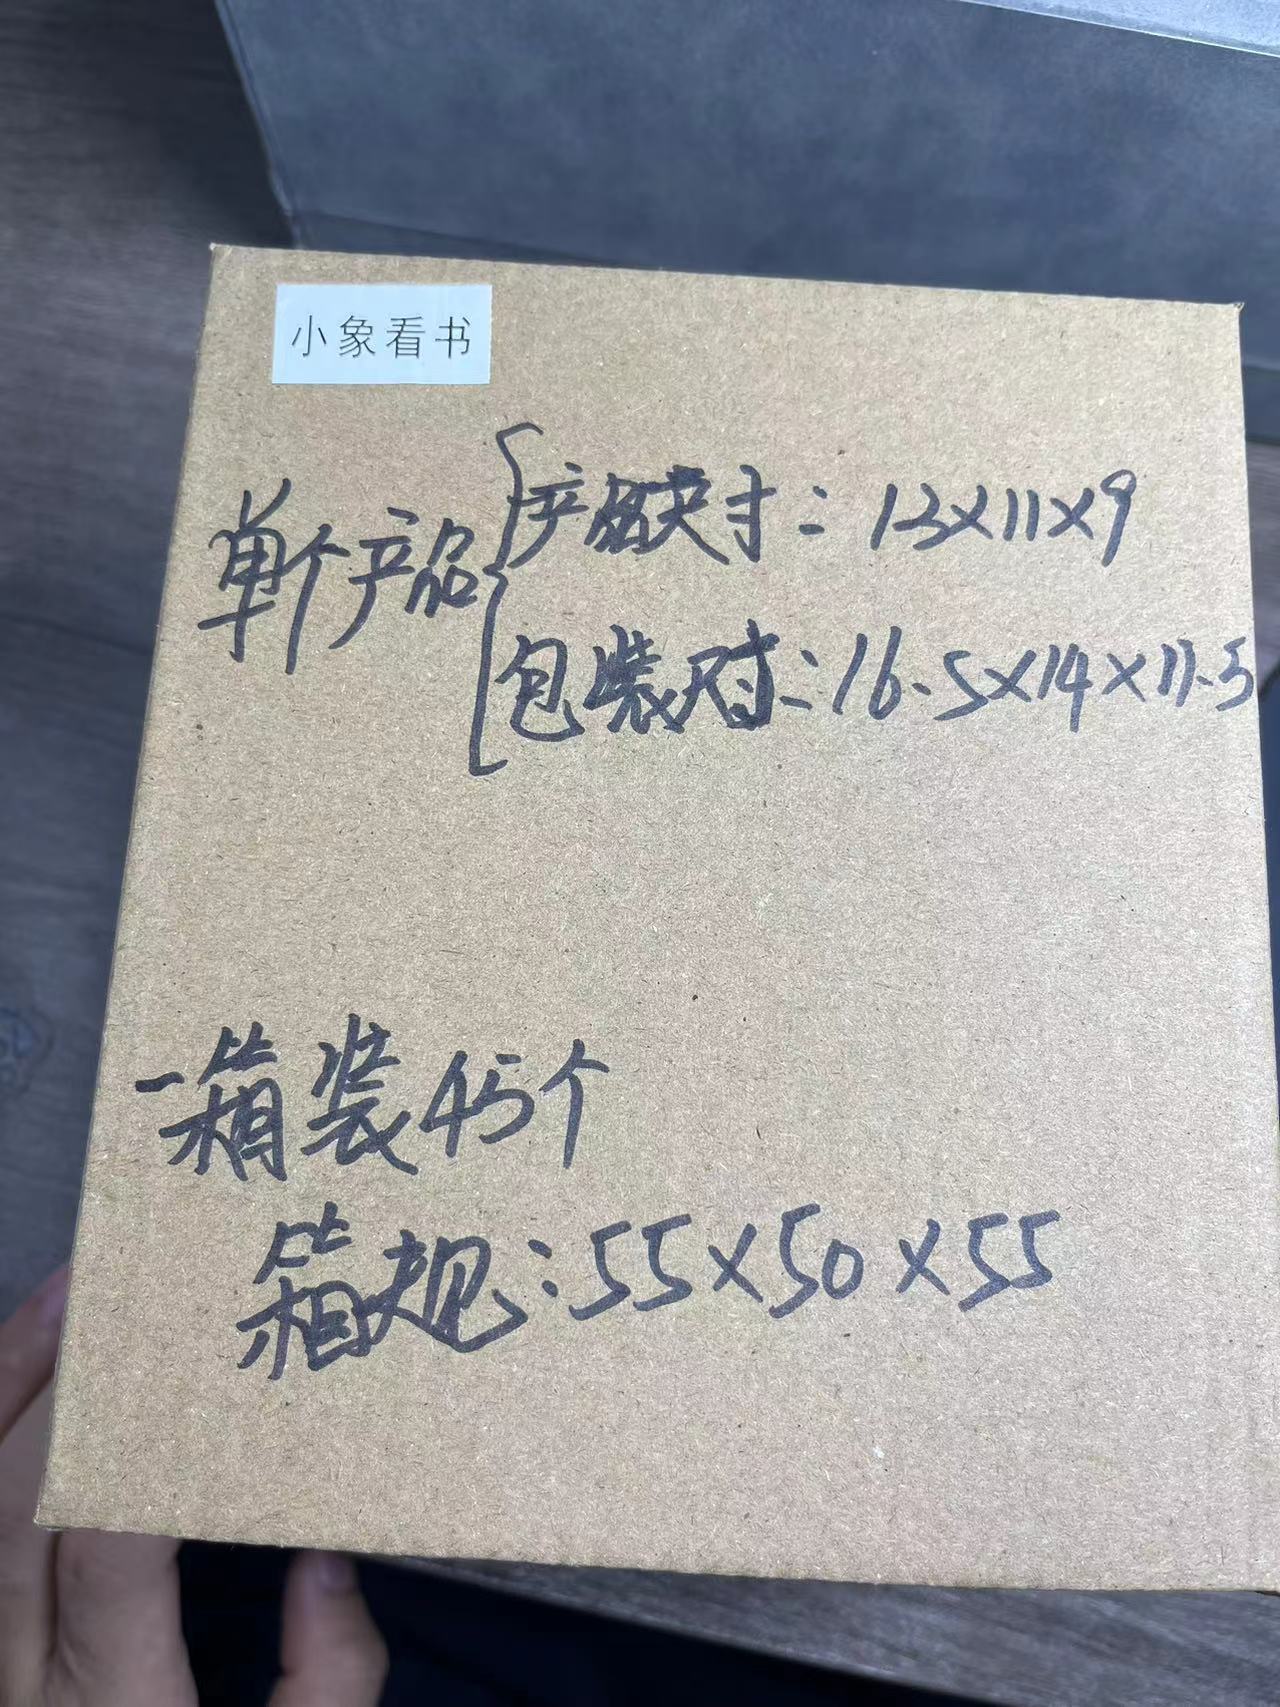 小象看书
单个产品
产品尺寸：13×11×9
包装尺寸：16.5×14×11.5
一箱装45个
箱规：55×50×55